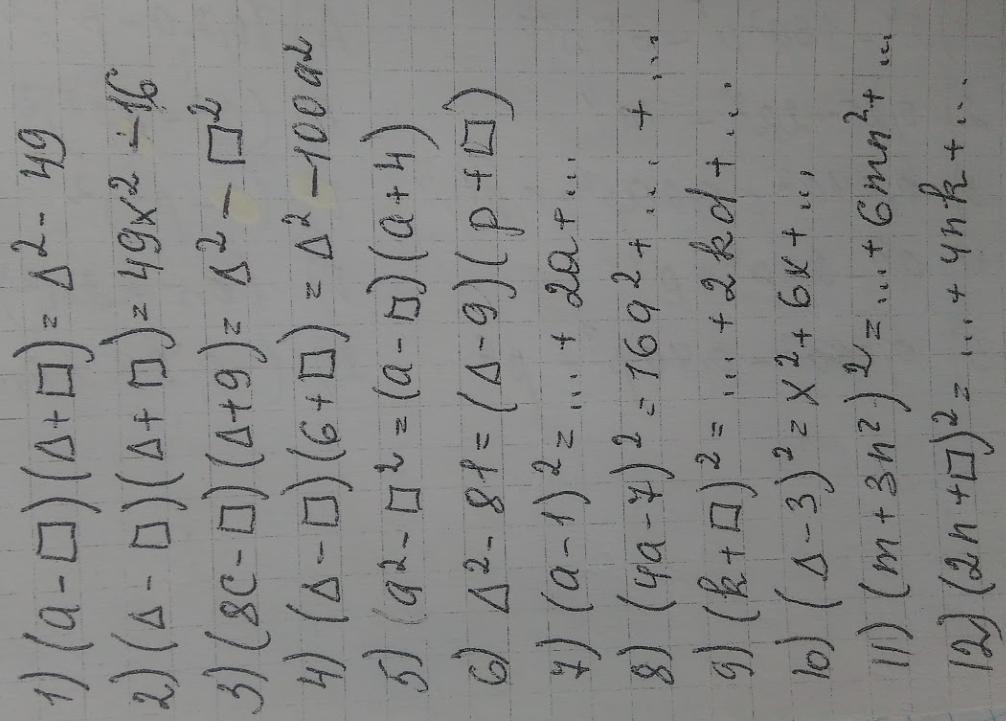 1) (a-□)(Δ+□)=Δ²-49
2) (Δ-□)(Δ+□)=49x²-16
3) (8c-□)(Δ+9)=Δ²-□²
4) (Δ-□)(6+□)=Δ²-100a²
5) (a²-□²=(a-□)(a+4)
6) Δ²-81=(Δ-9)(p+□)
7) (a-1)²=...+2a+...
8) (4a-7)²=16a²+...+...
9) (k+□)²=...+2kd+...
10) (Δ-3)²=x²+6x+...
11) (m+3n²)²=...+6mn²+...
12) (2n+□)²=...+4nk+...